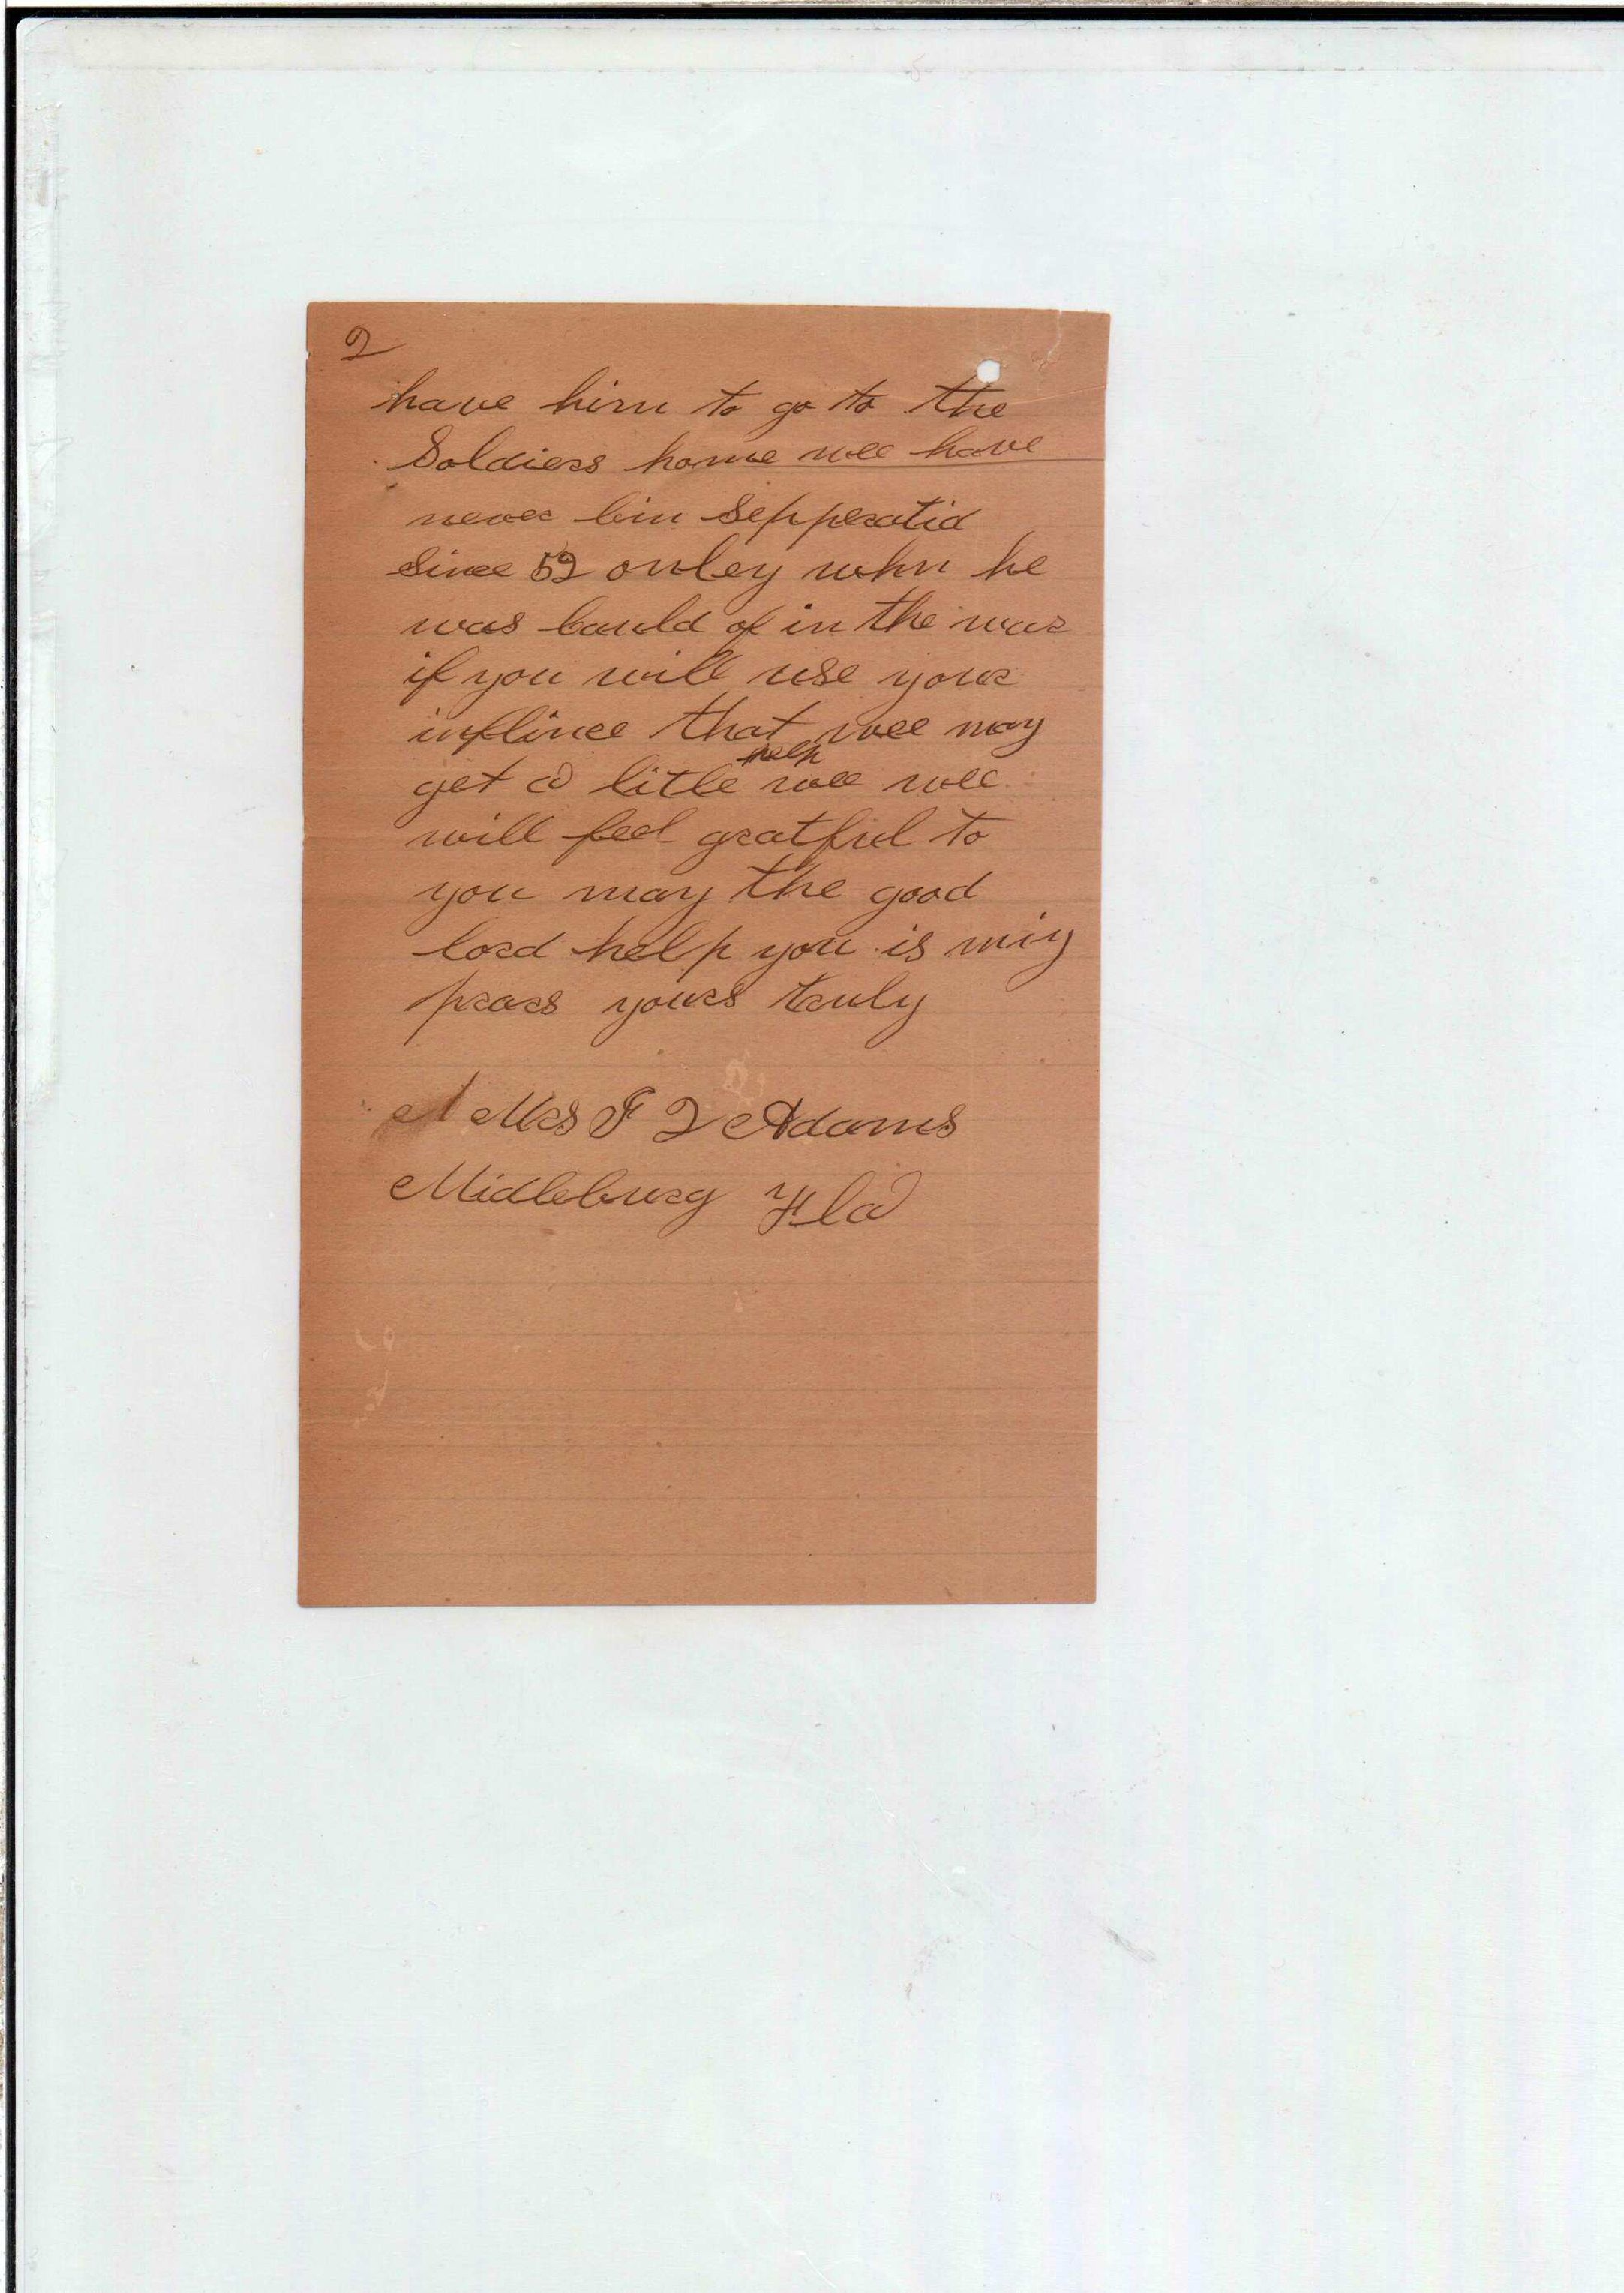 2
have him to go to the
Soldiers home wee have
never bin sepperatid
since 52 onley whn he
was bauld of in the war
if you will use your
inflince that wee may
get a litle help wee wee
will feel gratful to
you may the good
lord help you is miy
prars yours truly
Mrs F Adams
Midleburg Fla